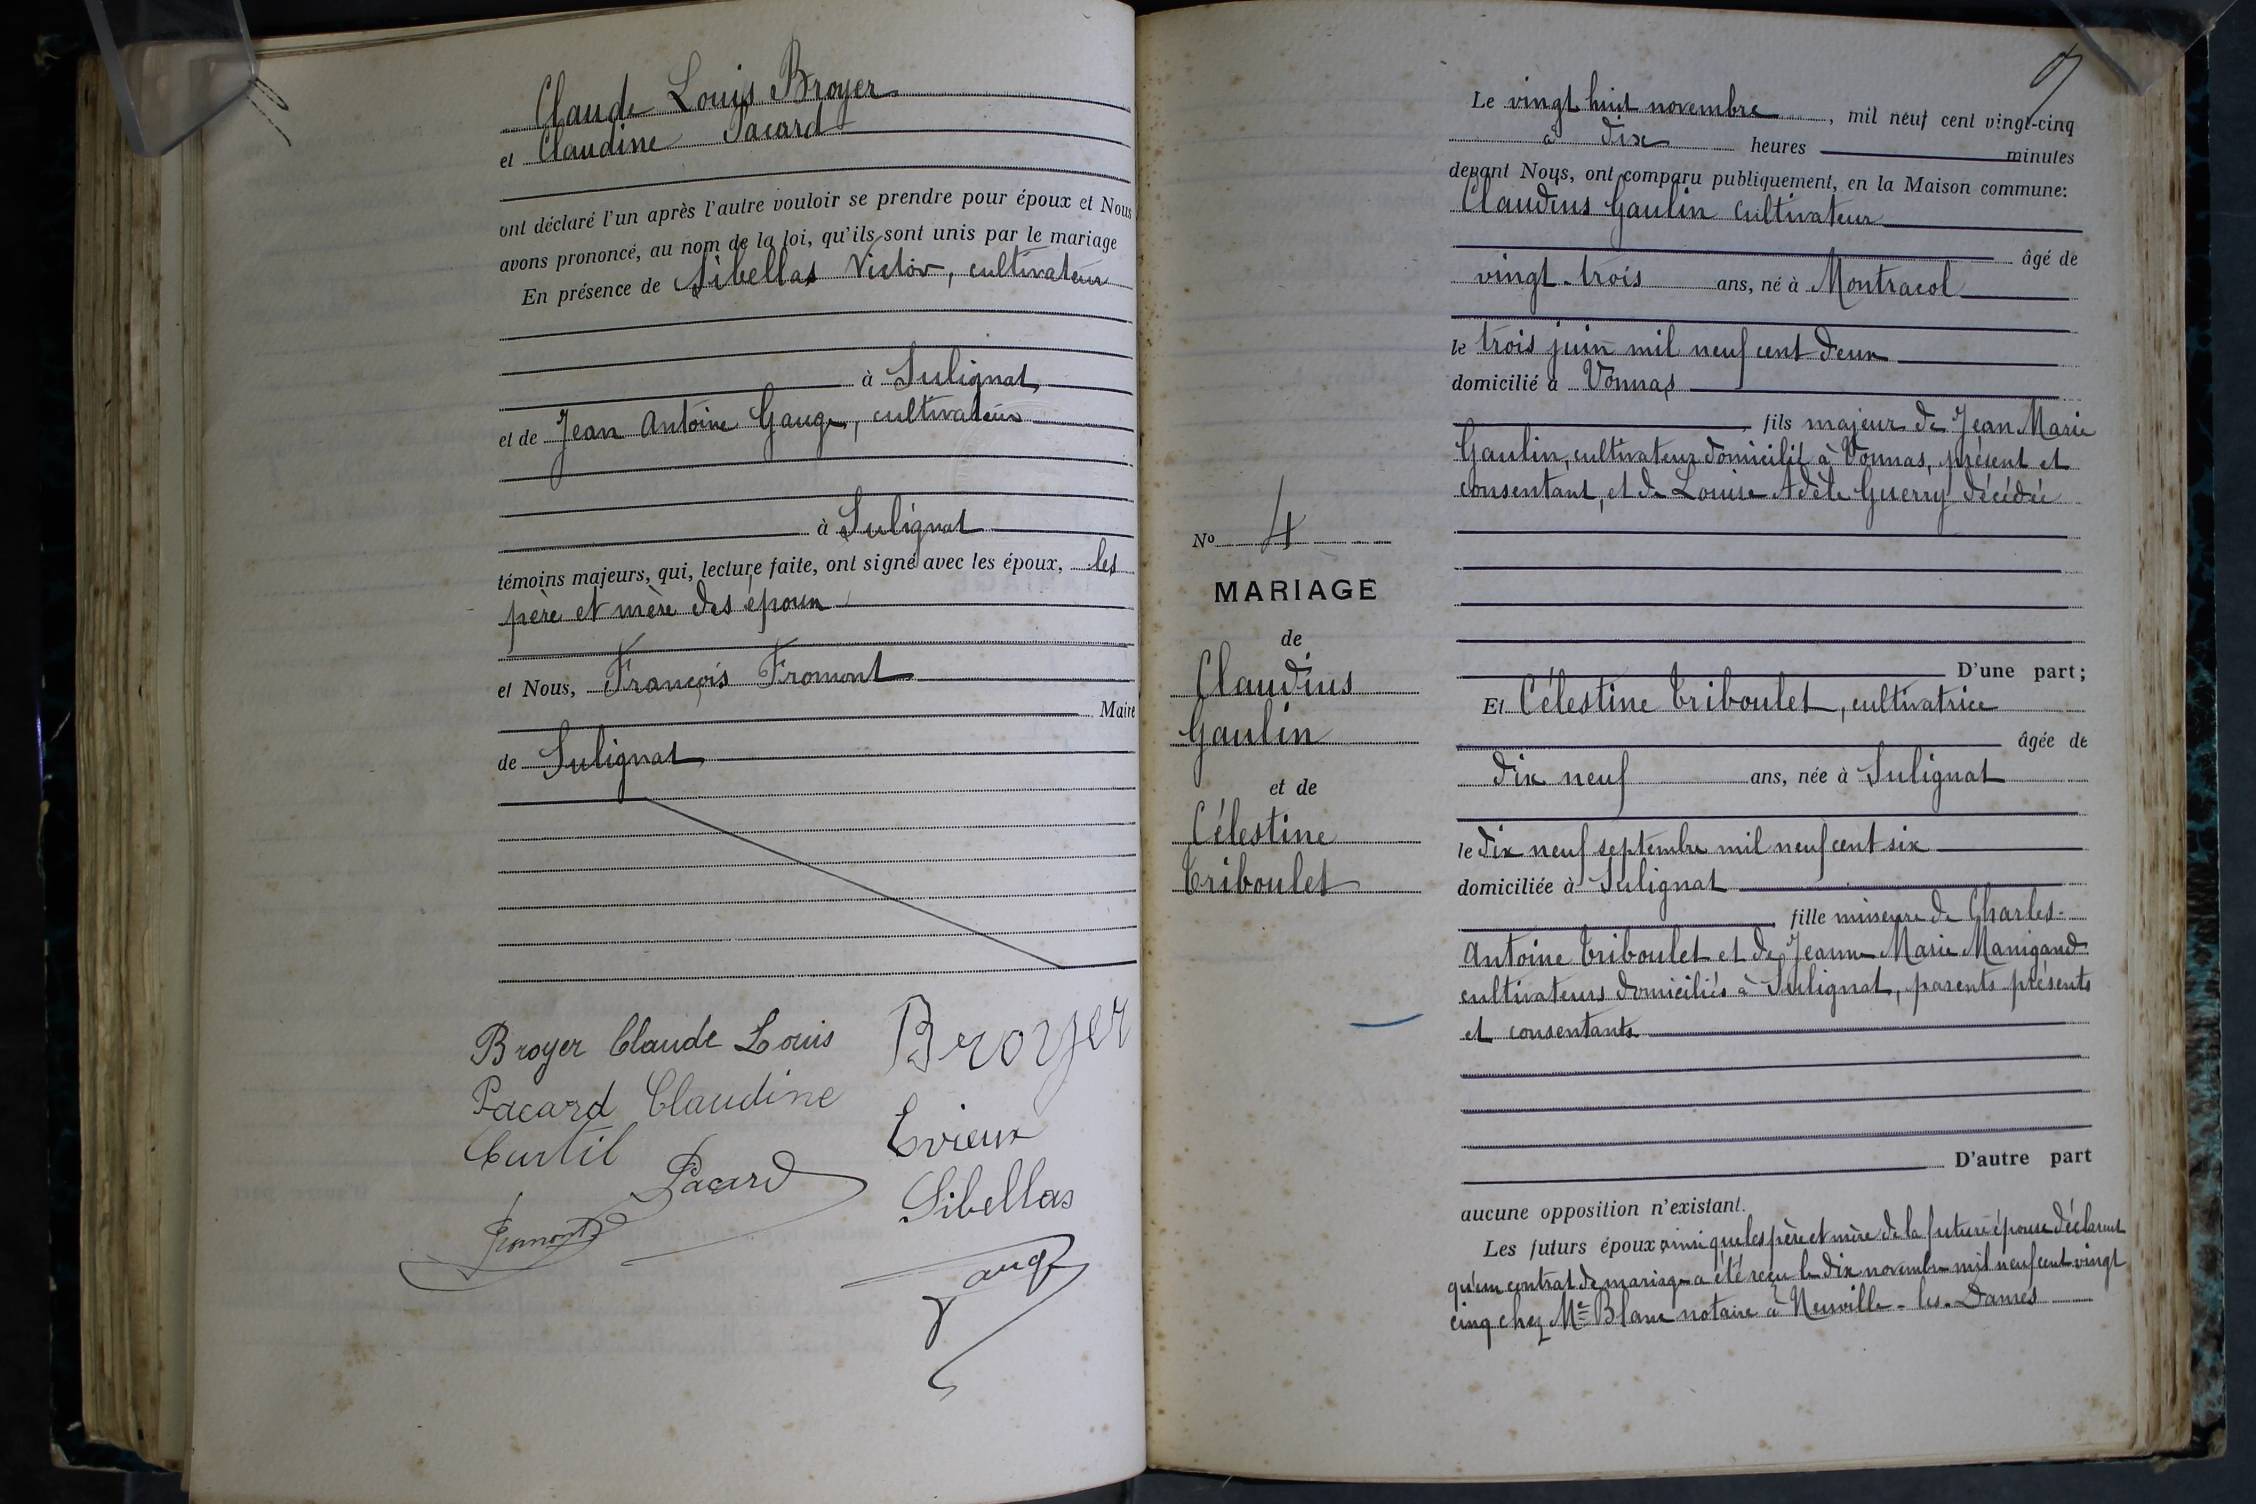 Claude Louis Broyer
et Claudine Pacard
ont déclaré l'un après l'autre vouloir se prendre pour époux et Nous
avons prononcé, au nom de la loi, qu'ils sont unis par le mariage
En présence de Sibellas Victor, cultivateur
à Sulignat
et de Jean Antoine Gauge, cultivateur
à Sulignat
témoins majeurs, qui, lecture faite, ont signé avec les époux, les
père et mère des époux
et Nous, François Fromont
Maire
de Sulignat
Broyer Claude Louis
Broyer
Pacard Claudine
Curtil
Evieux
Pacard
Sibellas
Fromont
Gauge
9
Le vingt huit novembre, mil neuf cent vingt-cinq
à dix heures minutes
devant Nous, ont comparu publiquement, en la Maison commune:
Claudius Gaulin cultivateur
âgé de
vingt-trois ans, né à Montracol
le trois juin mil neuf cent deux
domicilié à Vonnas
fils majeur de Jean Marie
Gaulin, cultivateur domicilié à Vonnas, présent et
consentant, et de Louise Adèle Guerry décédée
D'une part;
No 4
MARIAGE
de
Claudius
Gaulin
et de
Célestine
Triboulet
Et Célestine Triboulet, cultivatrice
âgée de
dix neuf ans, née à Sulignat
le dix neuf septembre mil neuf cent six
domiciliée à Sulignat
fille mineure de Charles-
Antoine Triboulet et de Jeanne Marie Manigand
cultivateurs domiciliés à Sulignat, parents présents
et consentants
D'autre part
aucune opposition n'existant.
Les futurs époux ainsi que les père et mère de la future épouse déclarent
qu'un contrat de mariage a été reçu le dix novembre mil neuf cent vingt
cinq chez Me Blanc notaire à Neuville-les-Dames